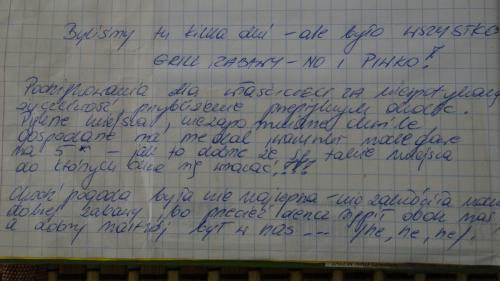 Byliśmy tu kilka dni - ale było WSZYSTKO
GRILL, ZABAWY - NO I PIWKO!
Podziękowania dla właścicieli za
życzliwość, przybliżenie okolic.
Piękne miejsca, niezapomniane chwile
gospodarze na medal,
na 5* - jak to dobrze że są takie miejsca
do których chce się wracać!!!
Choć pogoda była nie najlepsza - nie zakłóciła nam
dobrej zabawy, bo przecież obok nas
a dobry nastrój był w nas --- (he, he, he).